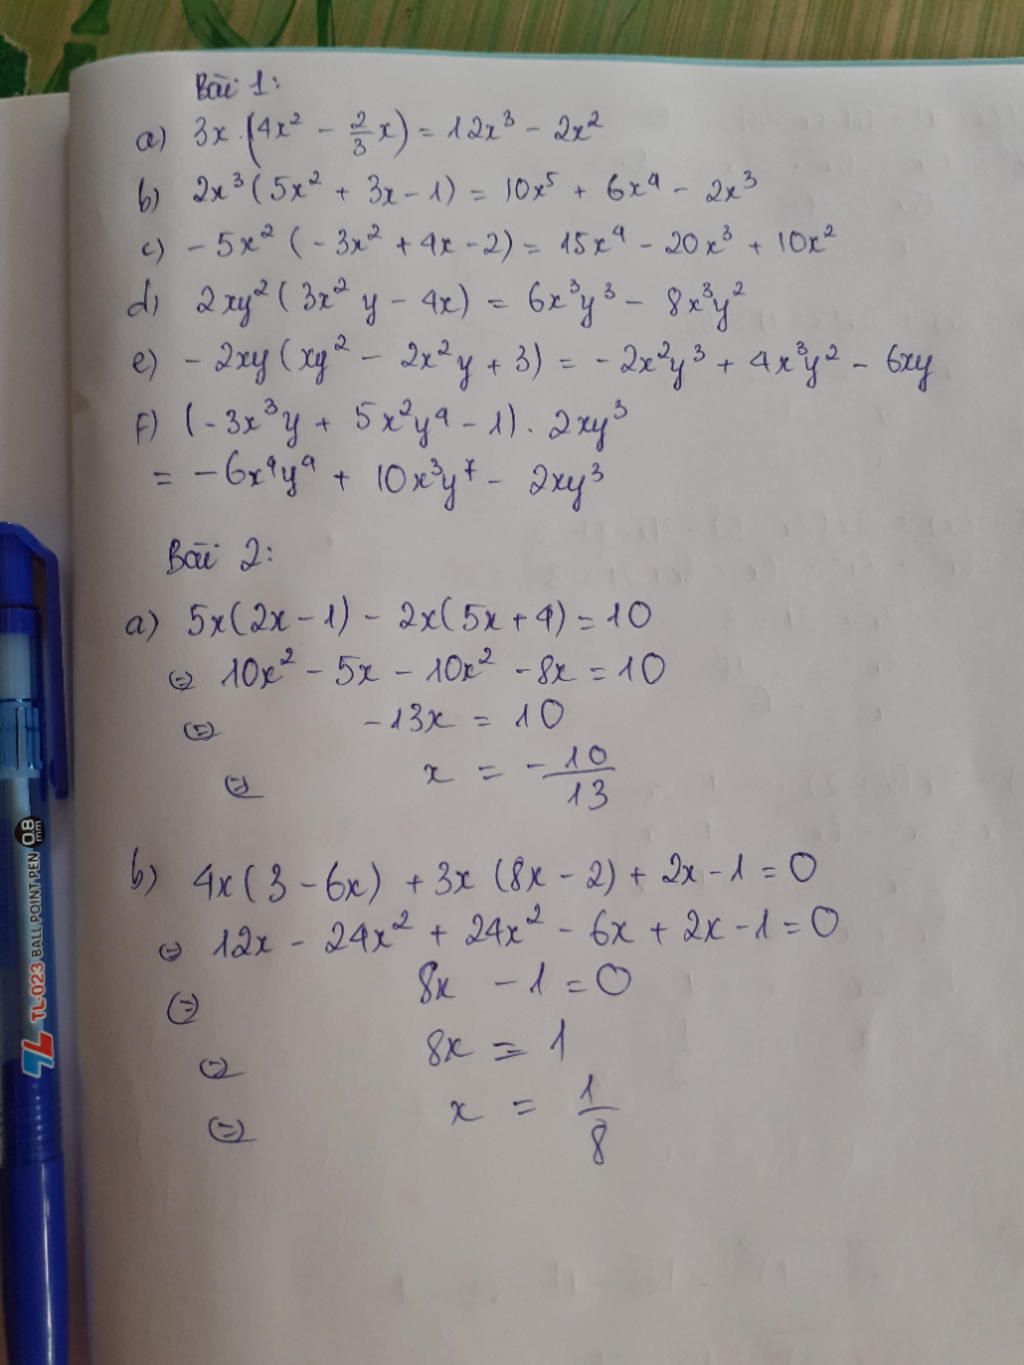 Bài 1:
a) 3x.(4x² - 2/3 x) = 12x³ - 2x²
b) 2x³(5x² + 3x - 1) = 10x⁵ + 6x⁴ - 2x³
c) -5x² (-3x² + 4x - 2) = 15x⁴ - 20x³ + 10x²
d) 2xy²(3x²y - 4x) = 6x³y³ - 8x³y²
e) -2xy(xy² - 2x²y + 3) = -2x²y³ + 4x³y² - 6xy
f) (-3x³y + 5x²y⁴ - 1). 2xy³
= -6x⁴y⁴ + 10x³y⁷ - 2xy³
Bài 2:
a) 5x(2x - 1) - 2x(5x + 4) = 10
⇔ 10x² - 5x - 10x² - 8x = 10
⇔ -13x = 10
⇔ x = -10/13
b) 4x(3 - 6x) + 3x (8x - 2) + 2x - 1 = 0
⇔ 12x - 24x² + 24x² - 6x + 2x - 1 = 0
⇔ 8x - 1 = 0
⇔ 8x = 1
⇔ x = 1/8
TL TL-023 BALL POINT PEN 0.8 mm